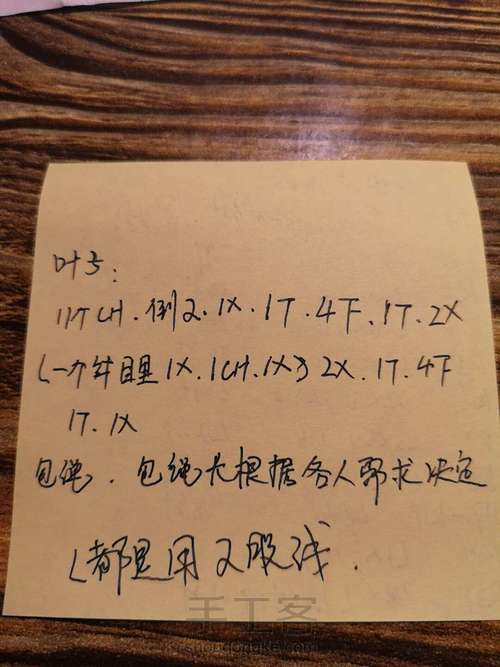 叶子:
11个CH.倒2.1X.1T.4下.1T.2X
(一个针目里1X.1CH.1X) 2X.17.4下
1T.1X
包绳.包绳大根据各人需求决定
(都是用2股线.
手工客
shougongke.com